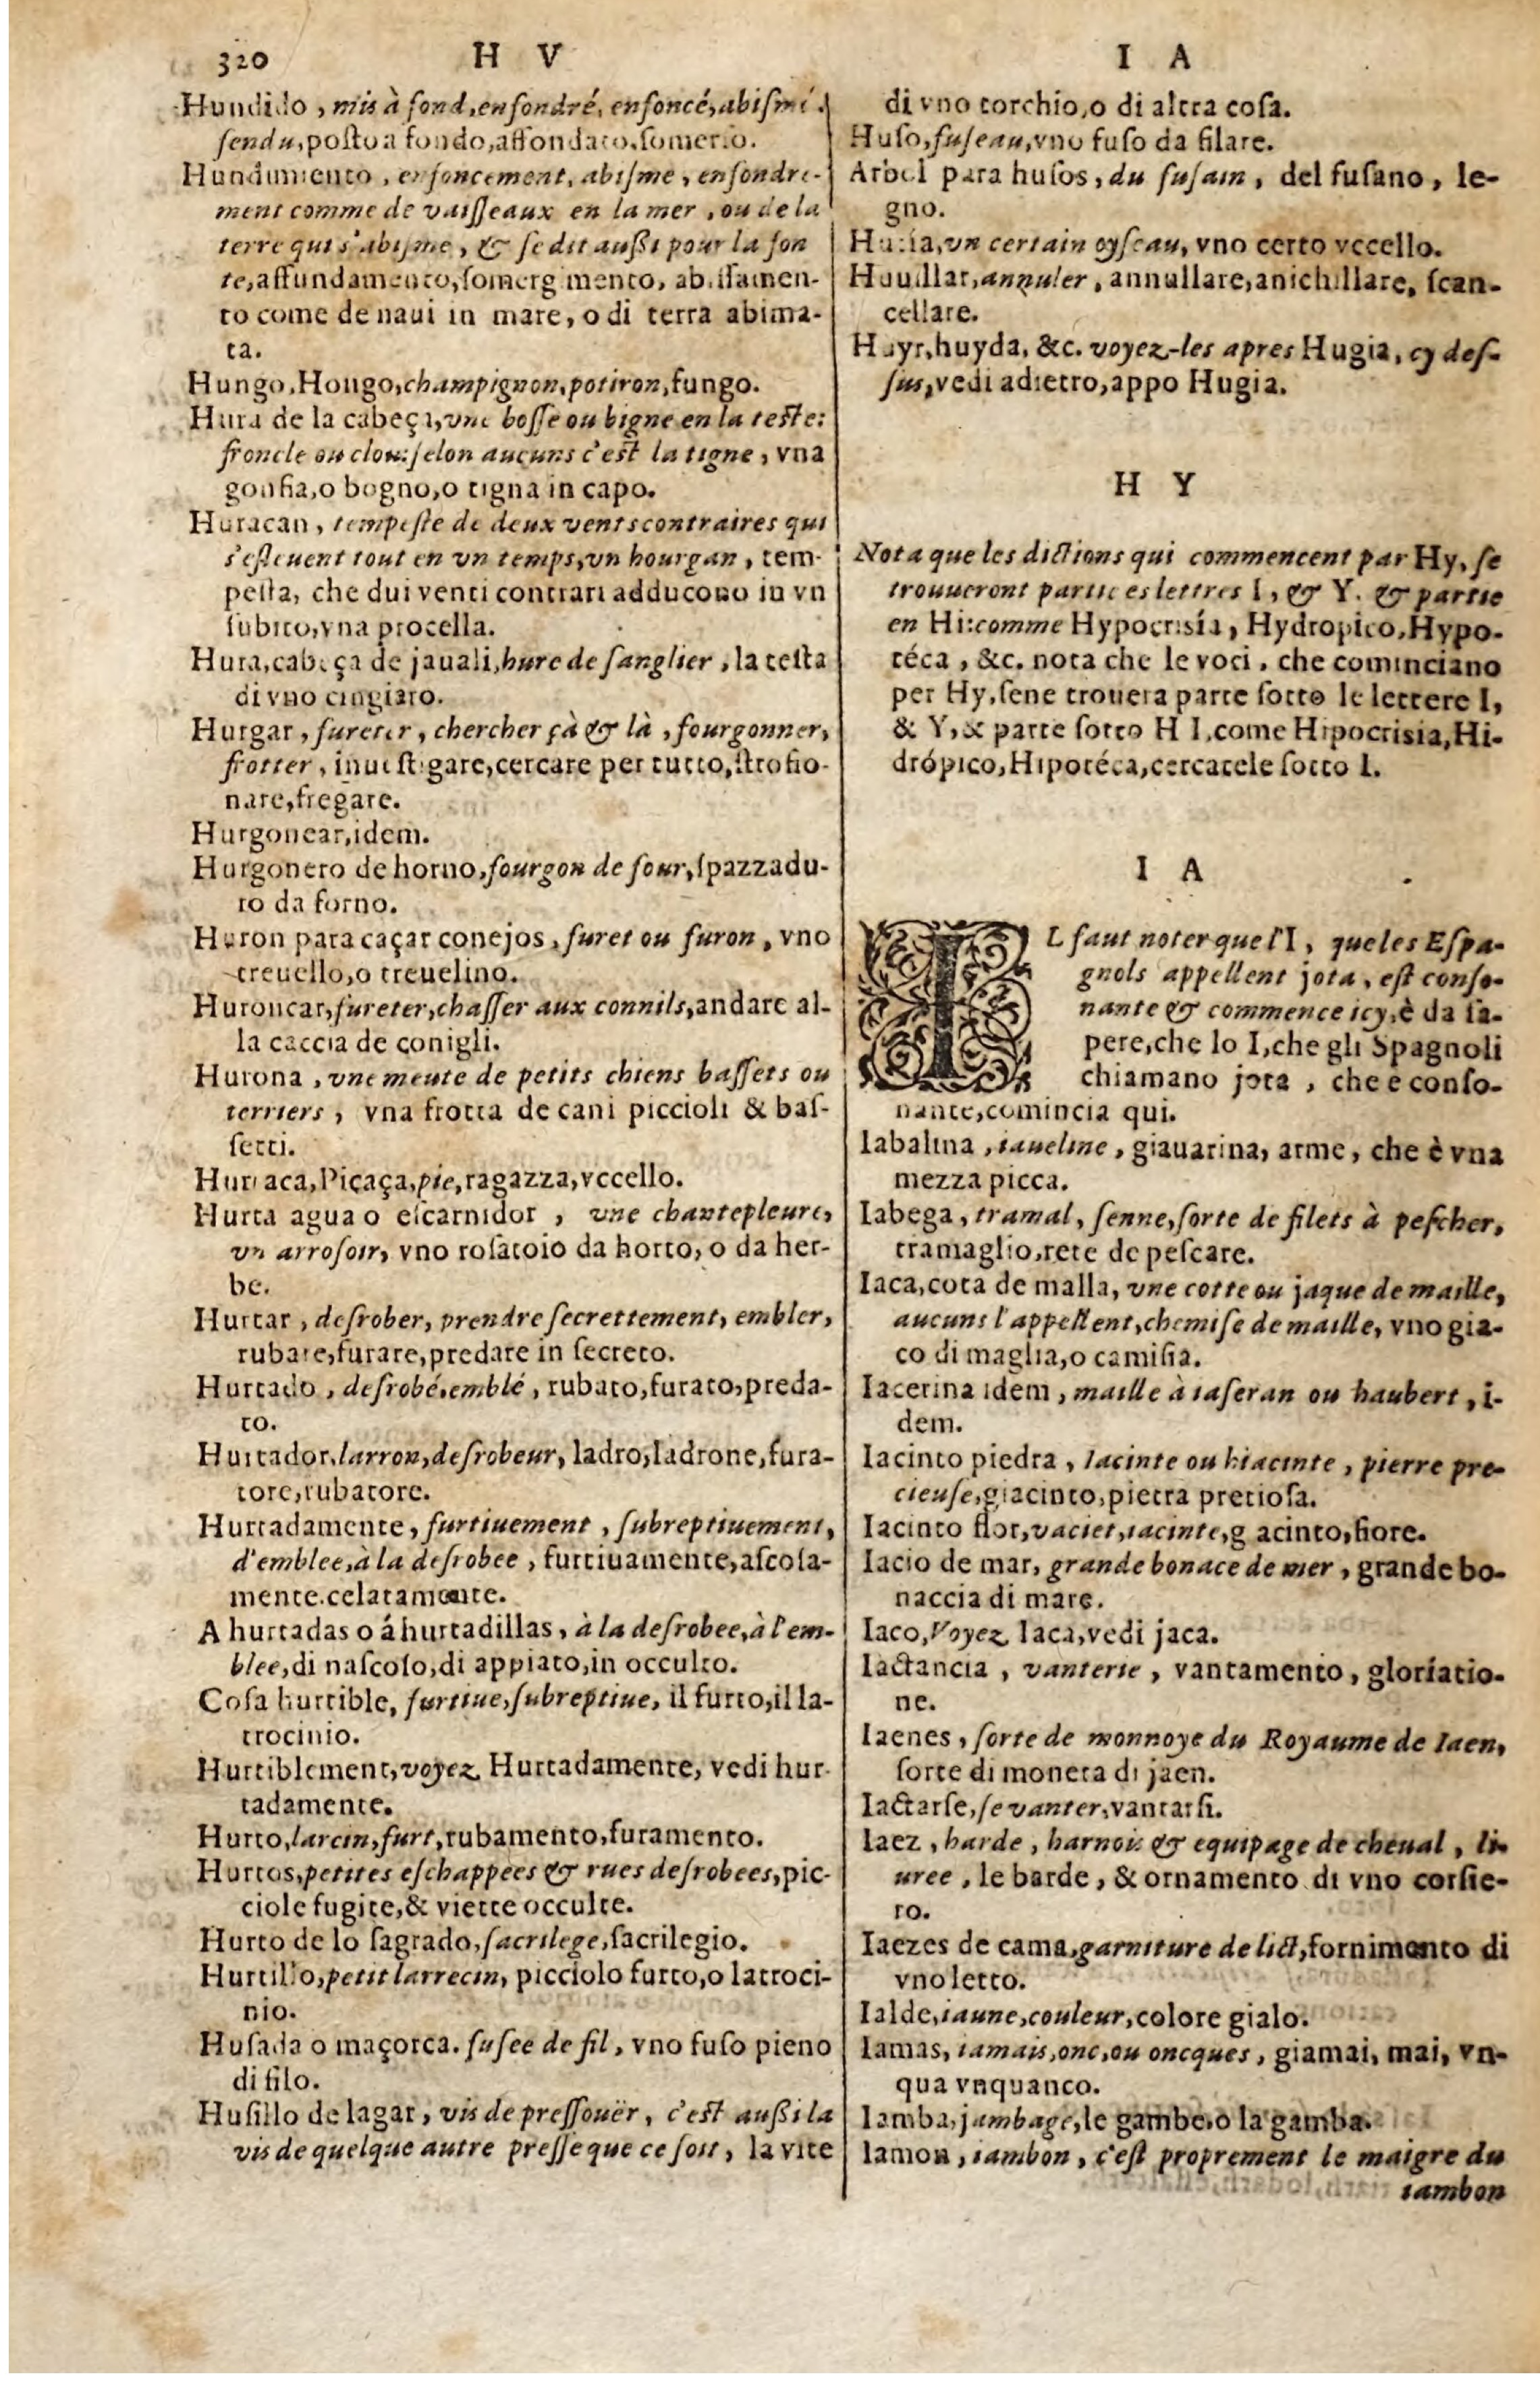 320 H V
Hundido, mis à fond, enfondré, enfoncé, abiſmé.
fendu, poſto a fondo, affondato, ſomerſo.
Hundimiento, enfoncement, abiſme, enfondre-
ment comme de vaiſſeaux en la mer, ou de la
terre qui s'abiſme, & ſe dit außi pour la fon
te, affundamento, ſomergimento, abiſſamen-
to come de naui in mare, o di terra abima-
ta.
Hungo, Hongo, champignon, potiron, fungo.
Hura de la cabeça, vne boſſe ou bigne en la teſte:
froncle ou clou: ſelon aucuns c'eſt la tigne, vna
gonfia, o bogno, o tigna in capo.
Huracan, tempeſte de deux vents contraires qui
s'eſleuent tout en vn temps, vn hourgan, tem-
peſta, che dui venti contrari adducono in vn
ſubito, vna procella.
Hura, cabeça de jauali, hure de ſanglier, la teſta
di vno cingiaro.
Hurgar, fureter, chercher çà & là, fourgonner,
frotter, inueſtigare, cercare per tutto, ſtrofio-
nare, fregare.
Hurgonear, idem.
Hurgonero de horno, fourgon de four, ſpazzadu-
ro da forno.
Huron para caçar conejos, furet ou furon, vno
treuello, o treuelino.
Huroncar, fureter, chaſſer aux connils, andare al-
la caccia de conigli.
Hurona, vne meute de petits chiens baſſets ou
terriers, vna frotta de cani piccioli & baſ-
ſetti.
Hurraca, Picaça, pie, ragazza, vccello.
Hurta agua o eſcarnidor, vne chantepleure,
vn arroſoir, vno roſatoio da horto, o da her-
be.
Hurtar, deſrober, prendre ſecrettement, embler,
rubare, furare, predare in ſecreto.
Hurtado, deſrobé, emblé, rubato, furato, preda-
to.
Hurtador, larron, deſrobeur, ladro, ladrone, fura-
tore, rubatore.
Hurtadamente, furtiuement, ſubreptiuement,
d'emblee, à la deſrobee, furtiuamente, aſcoſa-
mente. celatamente.
A hurtadas o á hurtadillas, à la deſrobee, à l'em-
blee, di naſcoſo, di appiato, in occulto.
Coſa hurtible, furtiue, ſubreptiue, il furto, il la-
trocinio.
Hurtiblement, voyez Hurtadamente, vedi hur-
tadamente.
Hurto, larcin, furt, rubamento, furamento.
Hurtos, petites eſchappees & rues deſrobees, pic-
ciole fugite, & viette occulte.
Hurto de lo ſagrado, ſacrilege, ſacrilegio.
Hurtillo, petit larrecin, picciolo furto, o latroci-
nio.
Huſada o maçorca. fuſee de fil, vno fuſo pieno
di filo.
Huſillo de lagar, vis de preſſouër, c'eſt außi la
vis de quelque autre preſſe que ce ſoit, la vite
I A
di vno torchio, o di altra coſa.
Huſo, fuſeau, vno fuſo da filare.
Arbol para huſos, du fuſain, del fuſano, le-
gno.
vn certain oyſeau, vno certo vccello.
annuler, annullare, anichillare, ſcan-
cellare.
Huyr, huyda, &c. voyez-les apres Hugia, cy deſ-
ſus, vedi adietro, appo Hugia.
H Y
Nota que les dictions qui commencent par Hy, ſe
trouueront partie es lettres I, & Y. & partie
en Hi: comme Hypocrisía, Hydropico, Hypo-
téca, &c. nota che le voci, che cominciano
per Hy, ſene trouera parte ſotto le lettere I,
& Y, & parte ſotto H I, come Hipocrisia, Hi-
drópico, Hipotéca, cercatele ſotto I.
I A
IL faut noter que l'I, que les Eſpa-
gnols appellent jota, eſt conſo-
nante & commence icy, è da ſa-
pere, che lo I, che gli Spagnoli
chiamano jota, che e conſo-
nante, comincia qui.
Iabalina, iaueline, giauarina, arme, che è vna
mezza picca.
Iabega, tramal, ſenne, ſorte de filets à peſcher,
tramaglio, rete de peſcare.
Iaca, cota de malla, vne cotte ou jaque de maille,
aucuns l'appellent, chemiſe de maille, vno gia-
co di maglia, o camiſia.
Iacerina idem, maille à iaſeran ou haubert, i-
dem.
Iacinto piedra, Iacinte ou hiacinte, pierre pre-
cieuſe, giacinto, pietra pretioſa.
Iacinto flor, vaciet, iacinte, giacinto, fiore.
Iacio de mar, grande bonace de mer, grande bo-
naccia di mare.
Iaco, Voyez Iaca, vedi jaca.
Iactancia, vanterie, vantamento, gloriatio-
ne.
Iaenes, ſorte de monnoye du Royaume de Iaen,
ſorte di moneta di jaen.
Iactarſe, ſe vanter, vantarſi.
Iaez, harde, harnois & equipage de cheual, li-
uree, le barde, & ornamento di vno corſie-
ro.
Iaezes de cama, garniture de lict, fornimento di
vno letto.
Ialde, iaune, couleur, colore gialo.
Iamas, iamais, onc, ou oncques, giamai, mai, vn-
qua vnquanco.
Iamba, jambage, le gambe, o la gamba.
Iamon, iambon, c'eſt proprement le maigre du
iambon